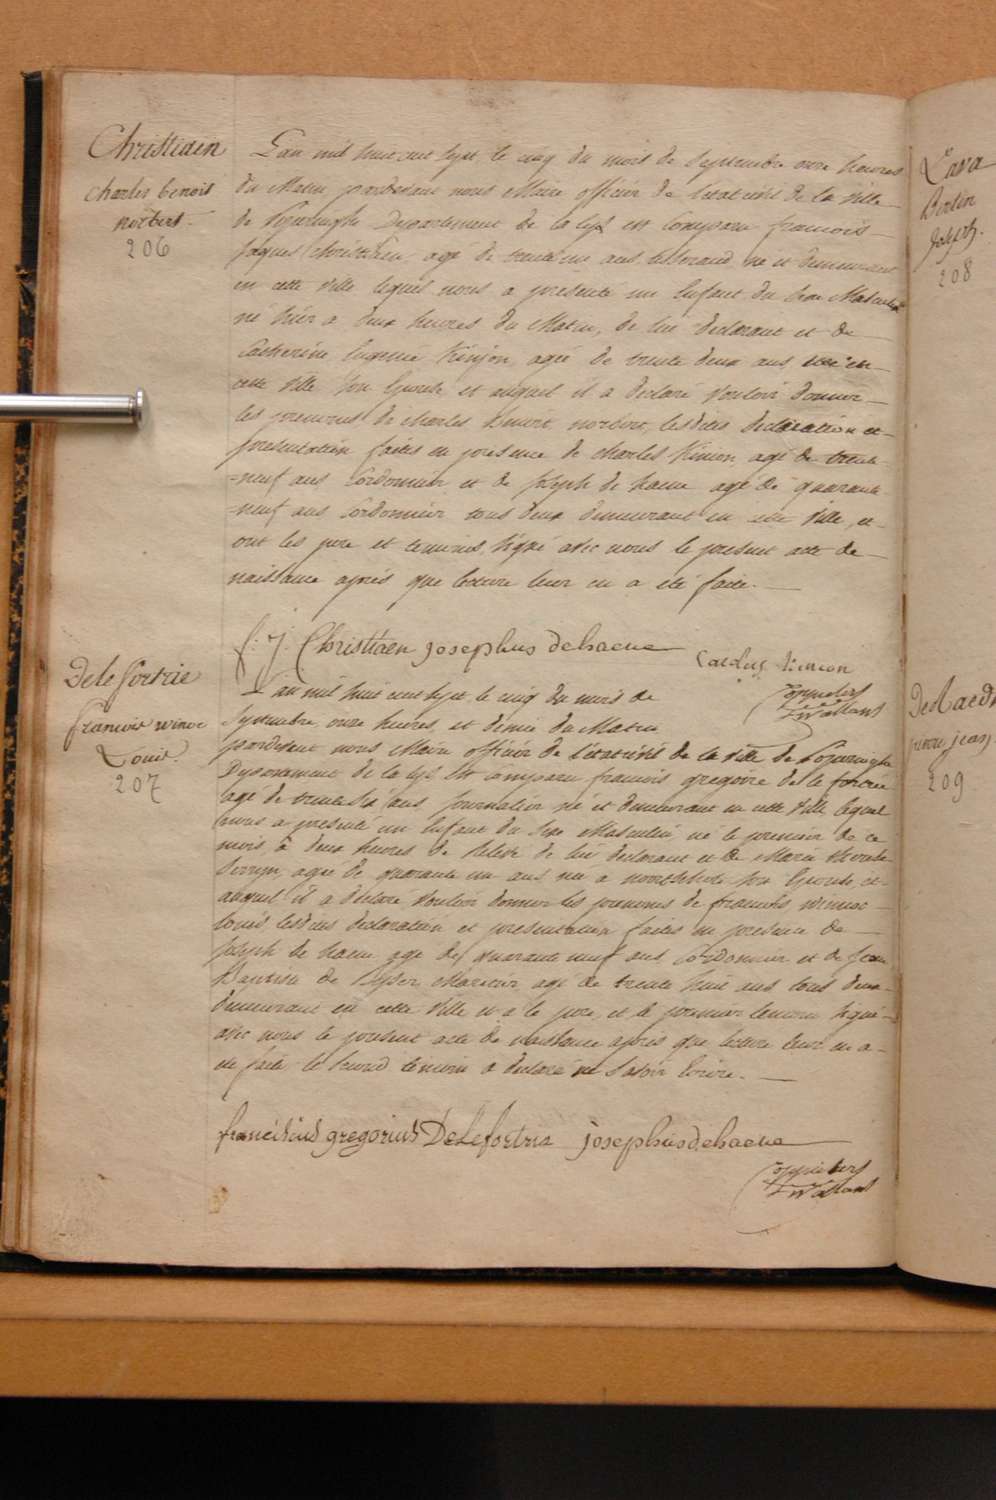 Christiaen
Charles benoit
norbert.
206
L'an mil huit cent sept, le cinq du mois de Septembre onze heures
du Matin pardevant nous Maire officier de l'état civil de la Ville
de Poperinghe Departement de la Lys est Comparu francois
Jaques Christiaen, agé de trente un ans, né et demeurant
en cette Ville lequel nous a présenté un Enfant du Sexe Masculin
né hier a deux heures du Matin, de lui declarant et de
Catherine Eugenie Kinjon, agée de trente deux ans née en
cette Ville son Epouse, et auquel il a declaré Vouloir donner
les prenoms de Charles benoit, norbert, lesdites declaration et
presentation faites en présence de Charles Kimon, agé de trente
=neuf ans Cordonnier et de Joseph de haene agé de quarante
=neuf ans Cordonnier tous deux demeurant en cette Ville, et
ont les pere et temoins, signé avec nous le present acte de
naissance après que lecture leur en a été faite.
f: J: Christiaen josephus dehaene Carolus Kimon
DeleFortrie
francois winoc
Louis.
207
L'an mil huit cent sept, le cinq du mois de
Septembre, onze heures, et demie du Matin
pardevant nous Maire officier de l'état civil de la Ville de Poperinghe
Departement de la Lys est comparu francois gregoire dele fortrie
agé de trente six ans journalier né et demeurant en cette Ville lequel
nous a presenté un Enfant du Sexe Masculin né le premier de ce
mois à deux heures de de lui declarant et de Marie
agée de quarante un ans née a son Epouse, et
auquel il a declaré Vouloir donner les prenoms de francois winnoc
louis, lesdites declaration et presentation faites en presence de
Joseph de haene agé de quarante neuf ans Cordonnier et de Jean
Baptiste de agé de trente huit ans tous deux
demeurant en cette Ville et a le pere, et le premier temoin signé
avec nous le present acte de naissance après que lecture leur en a
été faite le second temoin a declaré ne Savoir Ecrire.
franciscus gregorius DeLefortrie josephus dehaene
Lava
Bertin
Joseph.
208
DeRaedt
jean
209